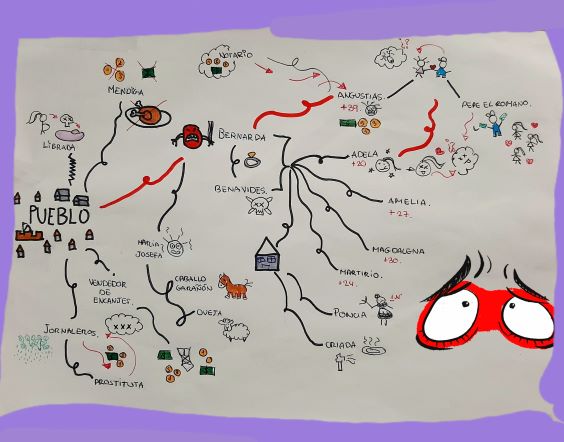 NOTARIO
MENDIGA
ANGUSTIAS.
+39.
PEPE EL ROMANO.
LIBRADA
BERNARDA
ADELA
+20
BENAVIDES.
AMELIA.
+27.
PUEBLO
MARIA
JOSEFA
MAGDALENA
+30.
MARTIRIO.
+24.
CABALLO
GARAÑÓN
VENDEDOR
DE
ENCAJES.
OVEJA
PONCIA
XXX
JORNALEROS.
CRIADA
PROSTITUTA